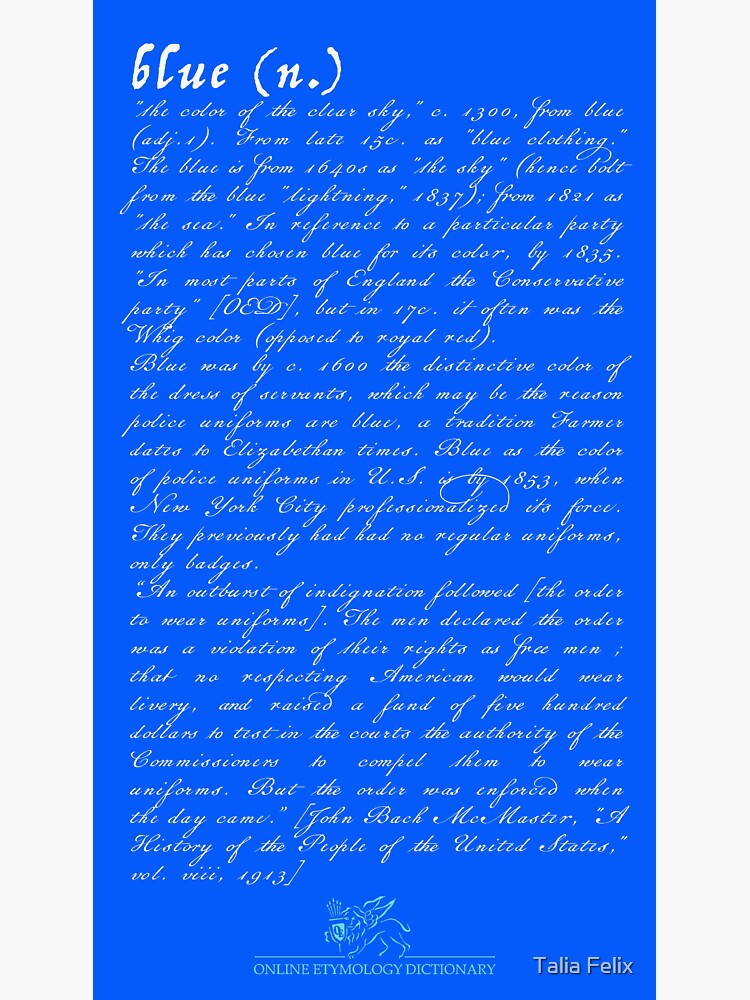 blue (n.)
"the color of the clear sky," c. 1300, from blue
(adj.1). From late 15c. as "blue clothing."
The blue is from 1640s as "the sky" (hence bolt
from the blue "lightning," 1837); from 1821 as
"the sea." In reference to a particular party
which has chosen blue for its color, by 1835.
"In most parts of England the Conservative
party" [OED], but in 17c. it often was the
Whig color (opposed to royal red).
Blue was by c. 1600 the distinctive color of
the dress of servants, which may be the reason
police uniforms are blue, a tradition Farmer
dates to Elizabethan times. Blue as the color
of police uniforms in U.S. is by 1853, when
New York City professionalized its force.
They previously had had no regular uniforms,
only badges.
"An outburst of indignation followed [the order
to wear uniforms]. The men declared the order
was a violation of their rights as free men ;
that no respecting American would wear
livery, and raised a fund of five hundred
dollars to test in the courts the authority of the
Commissioners to compel them to wear
uniforms. But the order was enforced when
the day came." [John Bach McMaster, "A
History of the People of the United States,"
vol. viii, 1913]
ONLINE ETYMOLOGY DICTIONARY
Talia Felix